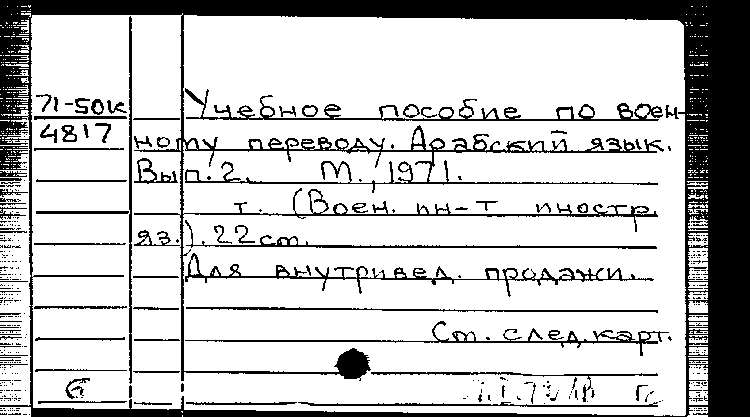 71-50к Учебное пособие по воен-
4817 ному переводу. Арабский язык.
Вып. 2. М., 1971.
т. (Воен. ин-т иностр.
яз.). 22 см.
Для внутривед. продажи.
См. след. карт.